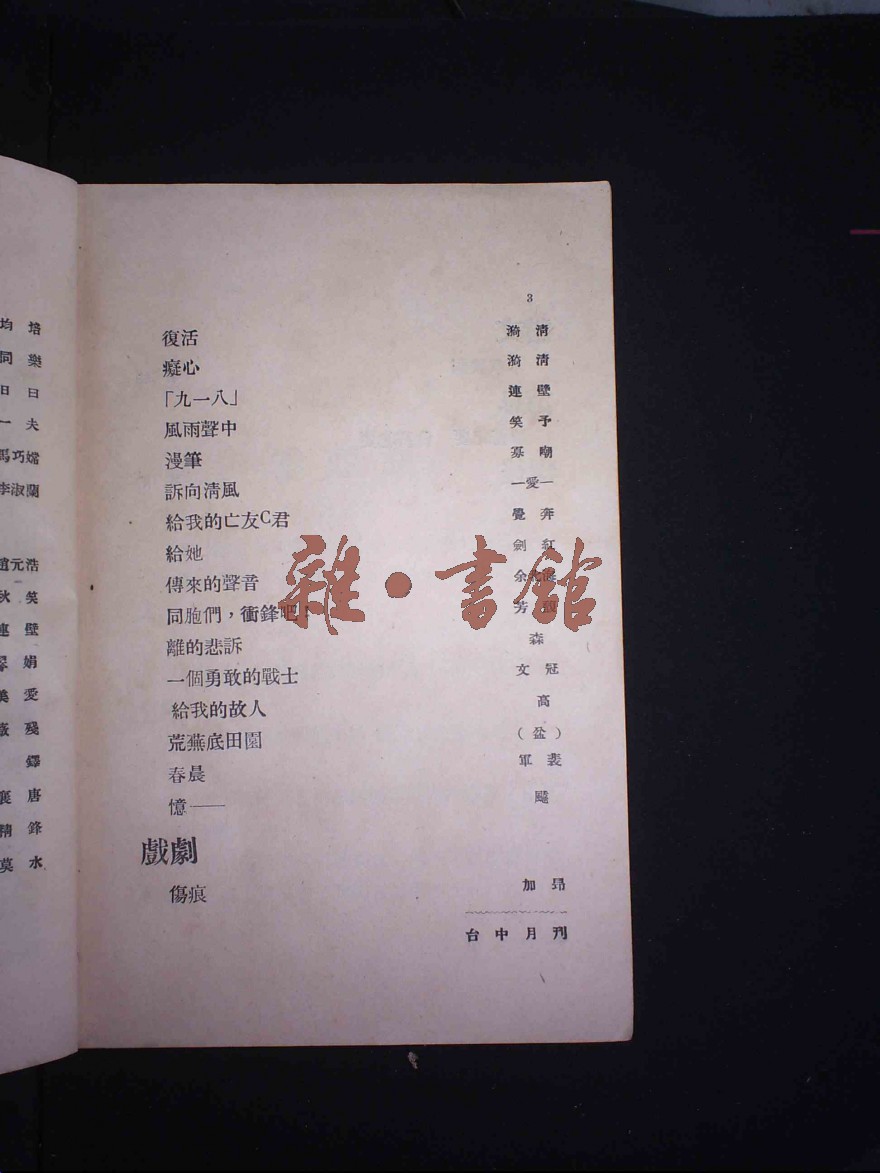 均 培
同 樂
日 日
一 夫
馬巧嫦
李淑蘭
趙元浩
秋 笑
連 璧
翠 娟
美 愛
薇 殘
鐸
襄 唐
精 鋒
莫 水
3
復活 漪 清
癡心 漪 清
「九一八」 連 璧
風雨聲中 笑 予
漫筆 嘲
訴向清風 一愛一
給我的亡友C君 覺 奔
給她 劍 紅
傳來的聲音 余
同胞們，衝鋒吧！ 芳
離的悲訴 森
一個勇敢的戰士 文 冠
給我的故人 高
荒蕪底田園 （盆）
春晨 軍 裴
憶—— 飈
戲劇
傷痕 加 昂
台中月刊
雜·書館